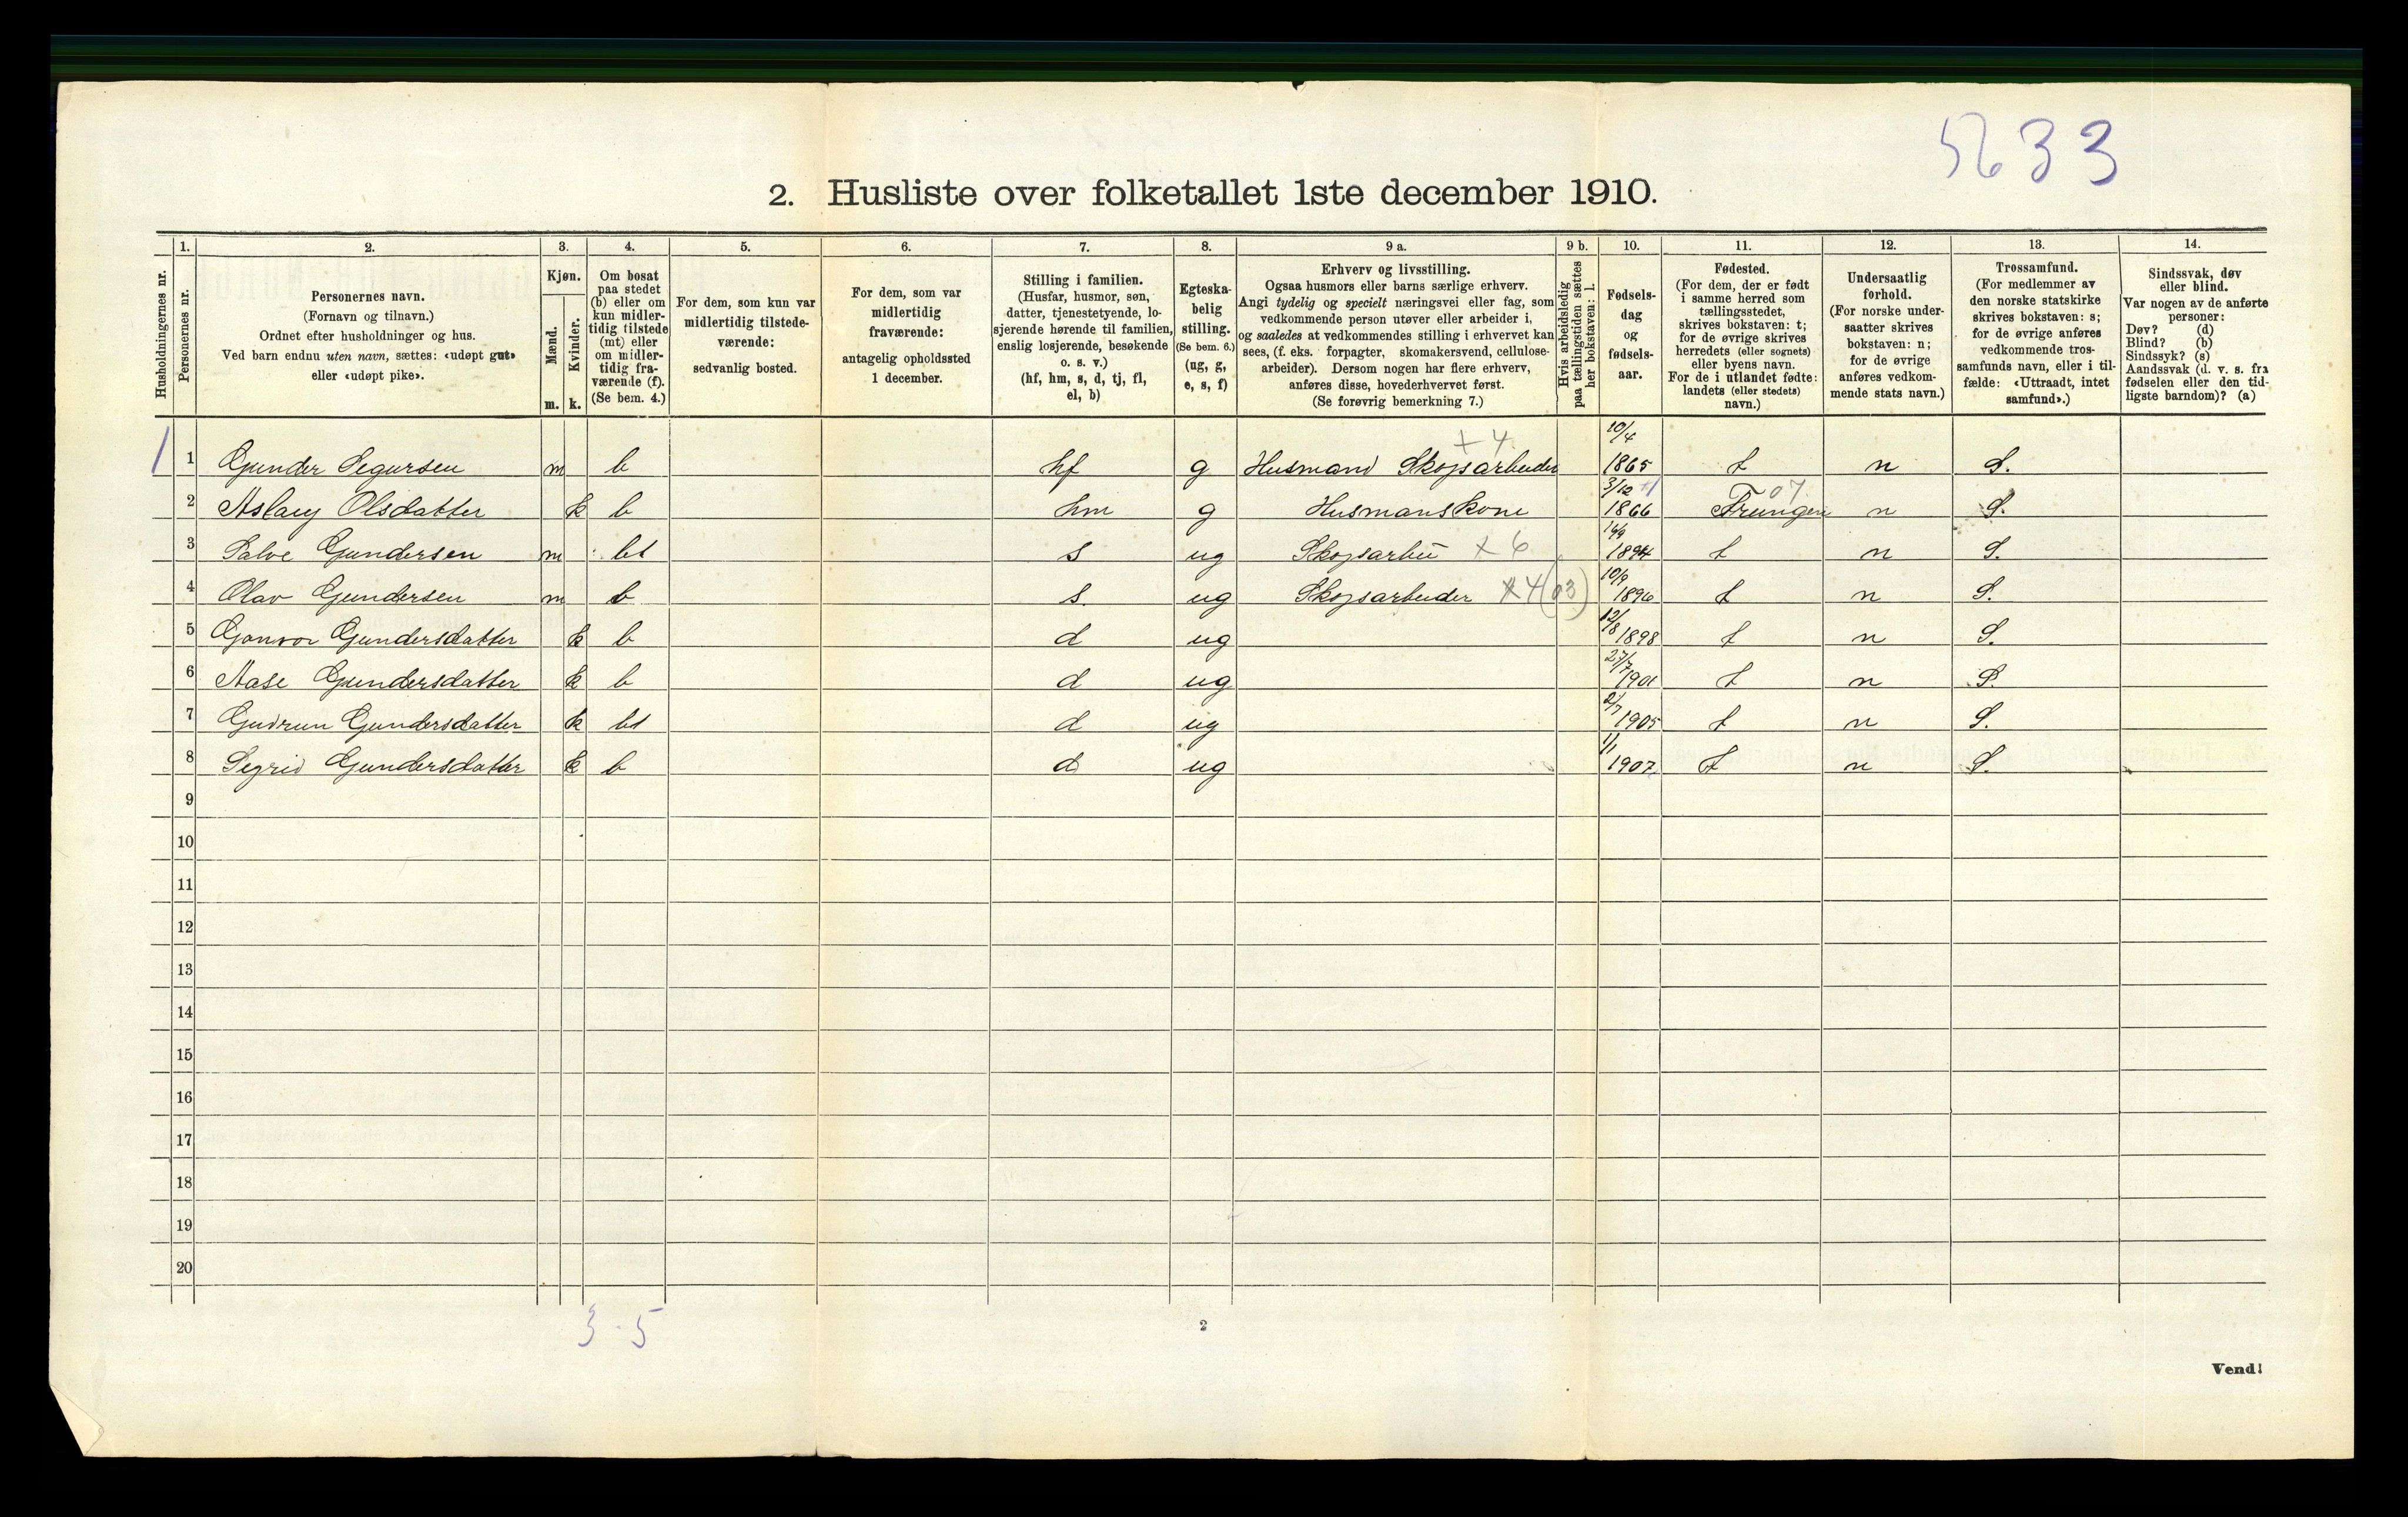 5633
2. Husliste over folketallet 1ste december 1910.
Husholdningernes nr.
1.
Personernes nr.
2.
Personernes navn.
(Fornavn og tilnavn.)
Ordnet efter husholdninger og hus.
Ved barn endnu uten navn, sættes: «udøpt gut»
eller «udøpt pike».
3.
Kjøn.
Mænd.
Kvinder.
m. k.
4.
Om bosat
paa stedet
(b) eller om
kun midler-
tidig tilstede
(mt) eller
om midler-
tidig fra-
værende (f).
(Se bem. 4.)
5.
For dem, som kun var
midlertidig tilstede-
værende:
sedvanlig bosted.
6.
For dem, som var
midlertidig
fraværende:
antagelig opholdssted
1 december.
7.
Stilling i familien.
(Husfar, husmor, søn,
datter, tjenestetyende, lo-
sjerende hørende til familien,
enslig losjerende, besøkende
o. s. v.)
(hf, hm, s, d, tj, fl,
el, b)
8.
Egteska-
belig
stilling.
(Se bem. 6.)
(ug, g,
e, s, f)
9 a.
Erhverv og livsstilling.
Ogsaa husmors eller barns særlige erhverv.
Angi tydelig og specielt næringsvei eller fag, som
vedkommende person utøver eller arbeider i,
og saaledes at vedkommendes stilling i erhvervet kan
sees, (f. eks. forpagter, skomakersvend, cellulose-
arbeider). Dersom nogen har flere erhverv,
anføres disse, hovederhvervet først.
(Se forøvrig bemerkning 7.)
9 b.
Hvis arbeidsledig
paa tællingstiden sættes
her bokstaven: l.
10.
Fødsels-
dag
og
fødsels-
aar.
11.
Fødested.
(For dem, der er født
i samme herred som
tællingsstedet,
skrives bokstaven: t;
for de øvrige skrives
herredets (eller sognets)
eller byens navn.
For de i utlandet fødte:
landets (eller stedets)
navn.)
12.
Undersaatlig
forhold.
(For norske under-
saatter skrives
bokstaven: n;
for de øvrige
anføres vedkom-
mende stats navn.)
13.
Trossamfund.
(For medlemmer av
den norske statskirke
skrives bokstaven: s;
for de øvrige anføres
vedkommende tros-
samfunds navn, eller i til-
fælde: «Uttraadt, intet
samfund».)
14.
Sindssvak, døv
eller blind.
Var nogen av de anførte
personer:
Døv? (d)
Blind? (b)
Sindssyk? (s)
Aandssvak (d. v. s. fra
fødselen eller den tid-
ligste barndom)? (a)
1 1 Gunder Segursen m b hf g Husmand Skogsarbeider + 4 10/4 1865 t n S.
2 Aslaug Olsdatter k b hm g Husmanskone 3/12 1866 07 n S.
3 Salve Gundersen m bt s ug x 6 1894 t n S.
4 Olav Gundersen m b s. ug Skogsarbeider x4(03) 10/9 1896 t n S.
5 Gonvor Gundersdatter k b d ug 12/8 1898 t n S.
6 Aase Gundersdatter k b d ug 27/7 1901 t n S.
7 Gudrun Gundersdatter k bt d ug 2/7 1905 t n S.
8 Segrid Gundersdatter k b d ug 1/1 1907 t n S.
9
10
11
12
13
14
15
16
17
18
19
20
3-5
2
Vend!